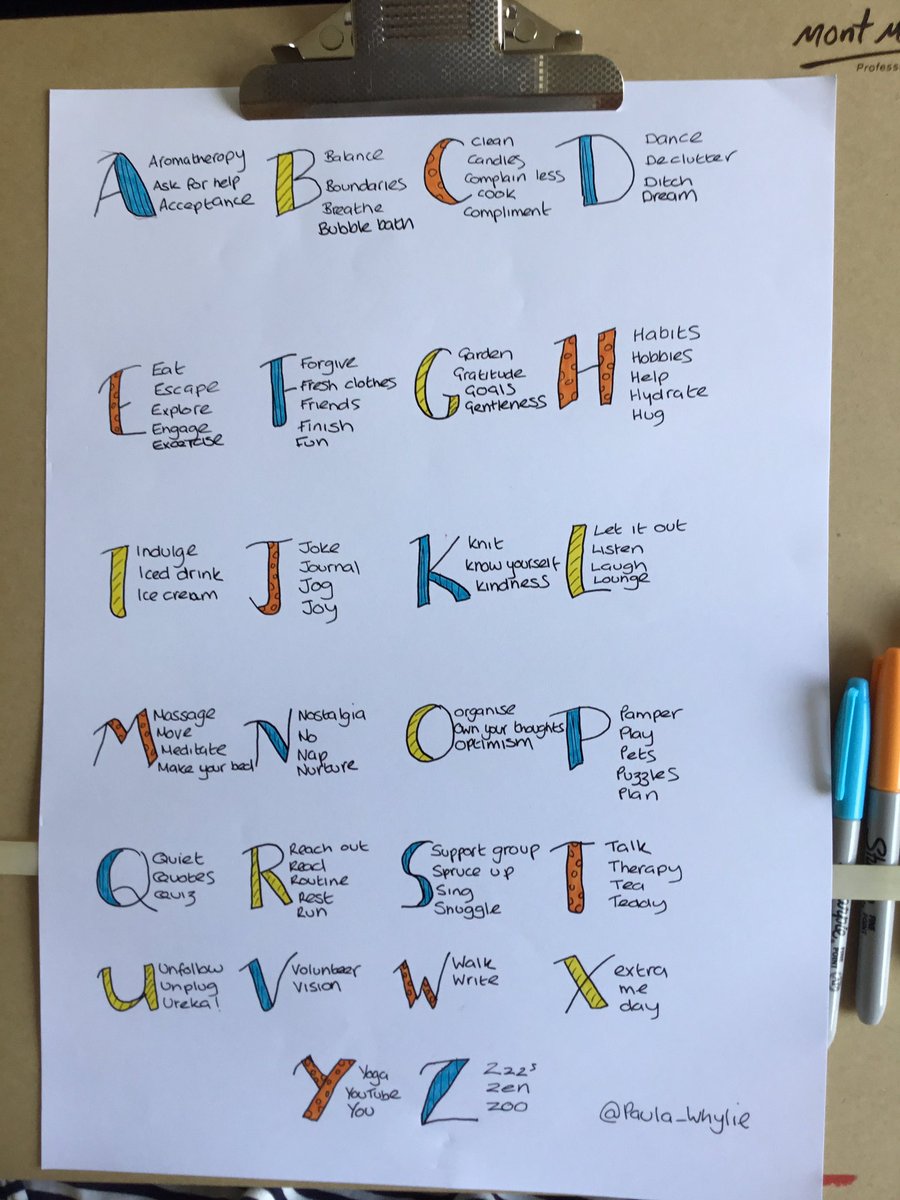 Mont M
Profess
A
Aromatherapy
Ask for help
Acceptance
B
Balance
Boundaries
Breathe
Bubble bath
C
Clean
Candles
Complain less
Cook
Compliment
D
Dance
Declutter
Ditch
Dream
E
Eat
Escape
Explore
Engage
Excercise
F
Forgive
Fresh clothes
Friends
Finish
Fun
G
Garden
Gratitude
Goals
Gentleness
H
Habits
Hobbies
Help
Hydrate
Hug
I
Indulge
Iced drink
Ice cream
J
Joke
Journal
Jog
Joy
K
Knit
Know yourself
Kindness
L
Let it out
Listen
Laugh
Lounge
M
Massage
Move
Meditate
Make your bed
N
Nostalgia
No
Nap
Nurture
O
Organise
Own your thoughts
Optimism
P
Pamper
Play
Pets
Puzzles
Plan
Q
Quiet
Quotes
Quiz
R
Reach out
Read
Routine
Rest
Run
S
Support group
Spruce up
Sing
Snuggle
T
Talk
Therapy
Tea
Teddy
U
Unfollow
Unplug
Ureka!
V
Volunteer
Vision
W
Walk
Write
X
extra
me
day
Y
Yoga
YouTube
You
Z
Zzzs
Zen
Zoo
@Paula_Whylie